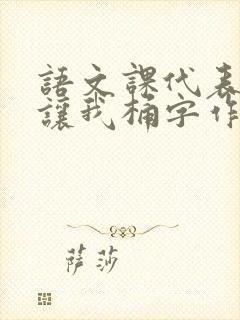 語文課代表
讓我桶字作
萨莎